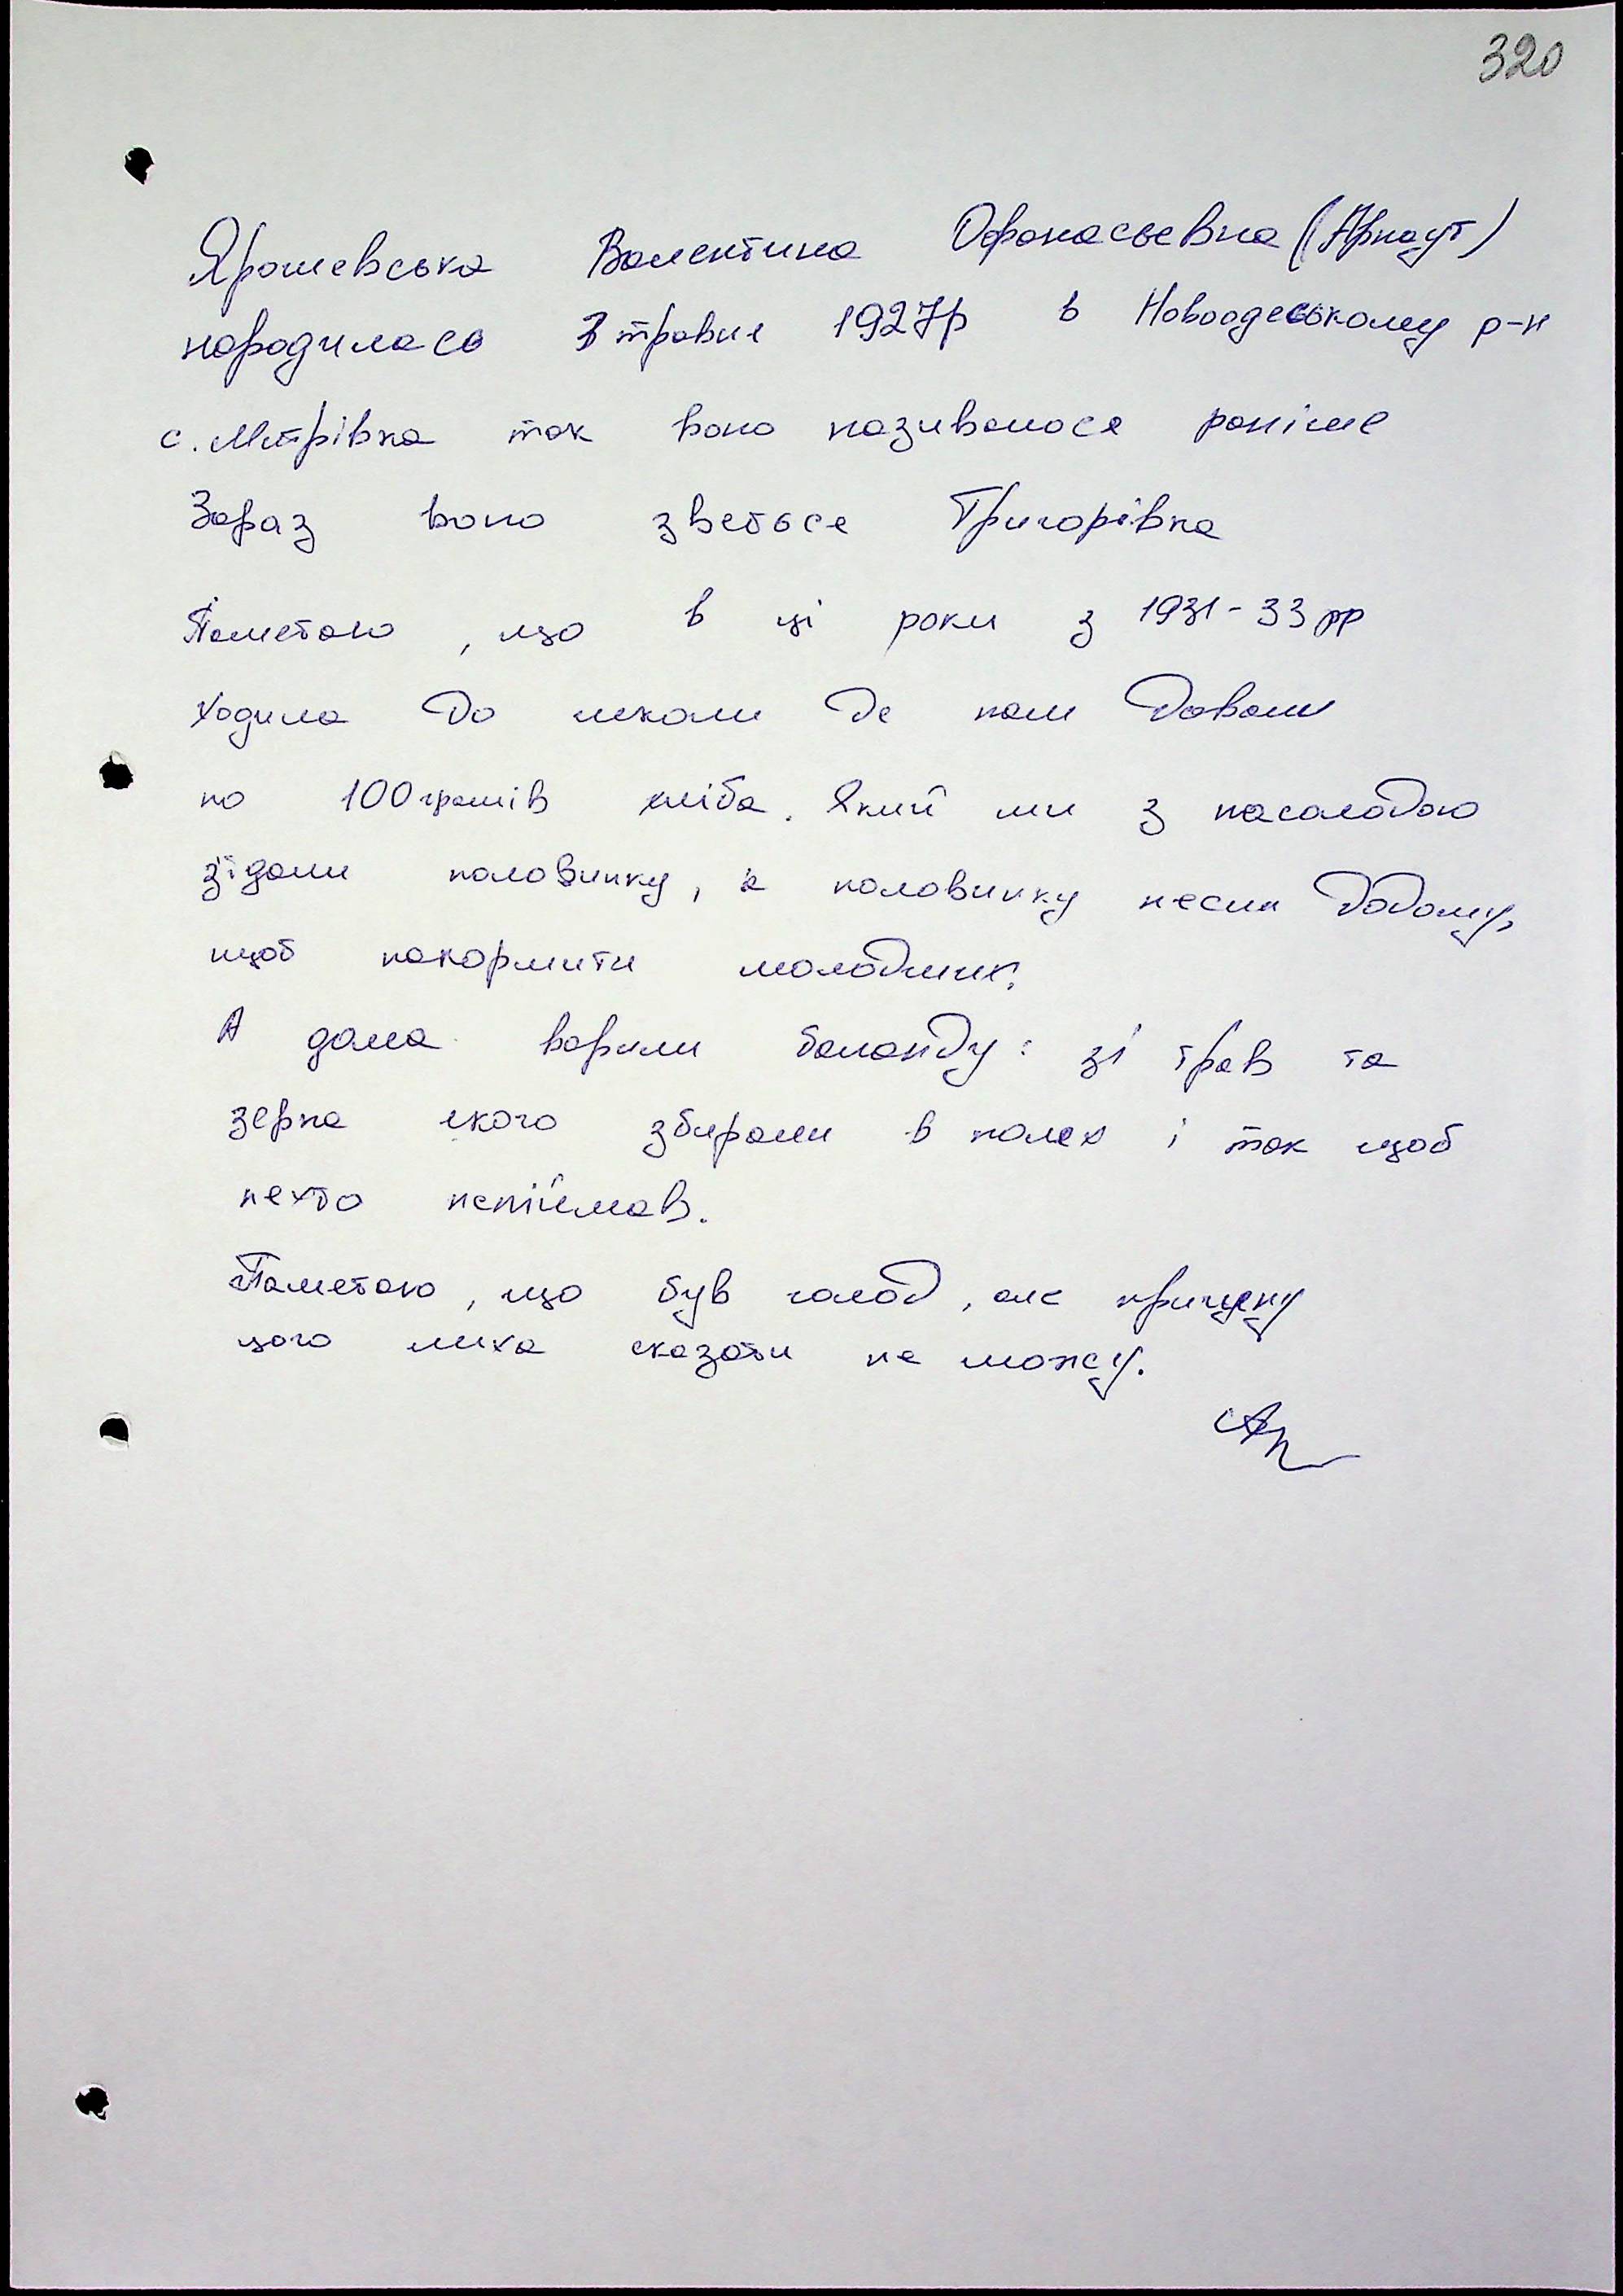 320
Ярошевська Валентина Офанасьевна (Арнаут)
народилась 3 травня 1927р в Новоодеському р-н
с. Митрівка так воно називалося раніше
Зараз воно зветься Григорівка
Памятаю, що в ці роки з 1931-33 рр
ходила до школи де нам давали
по 100 грамів хліба. Який ми з насолодою
зїдали половинку, а половинку несли додому,
щоб накормити молодших.
А дома варили баланду: зі трав та
зерна якого збирали в полях і так щоб
нехто непіймав.
Памятаю, що був голод, але причину
цього лиха сказати не можу.